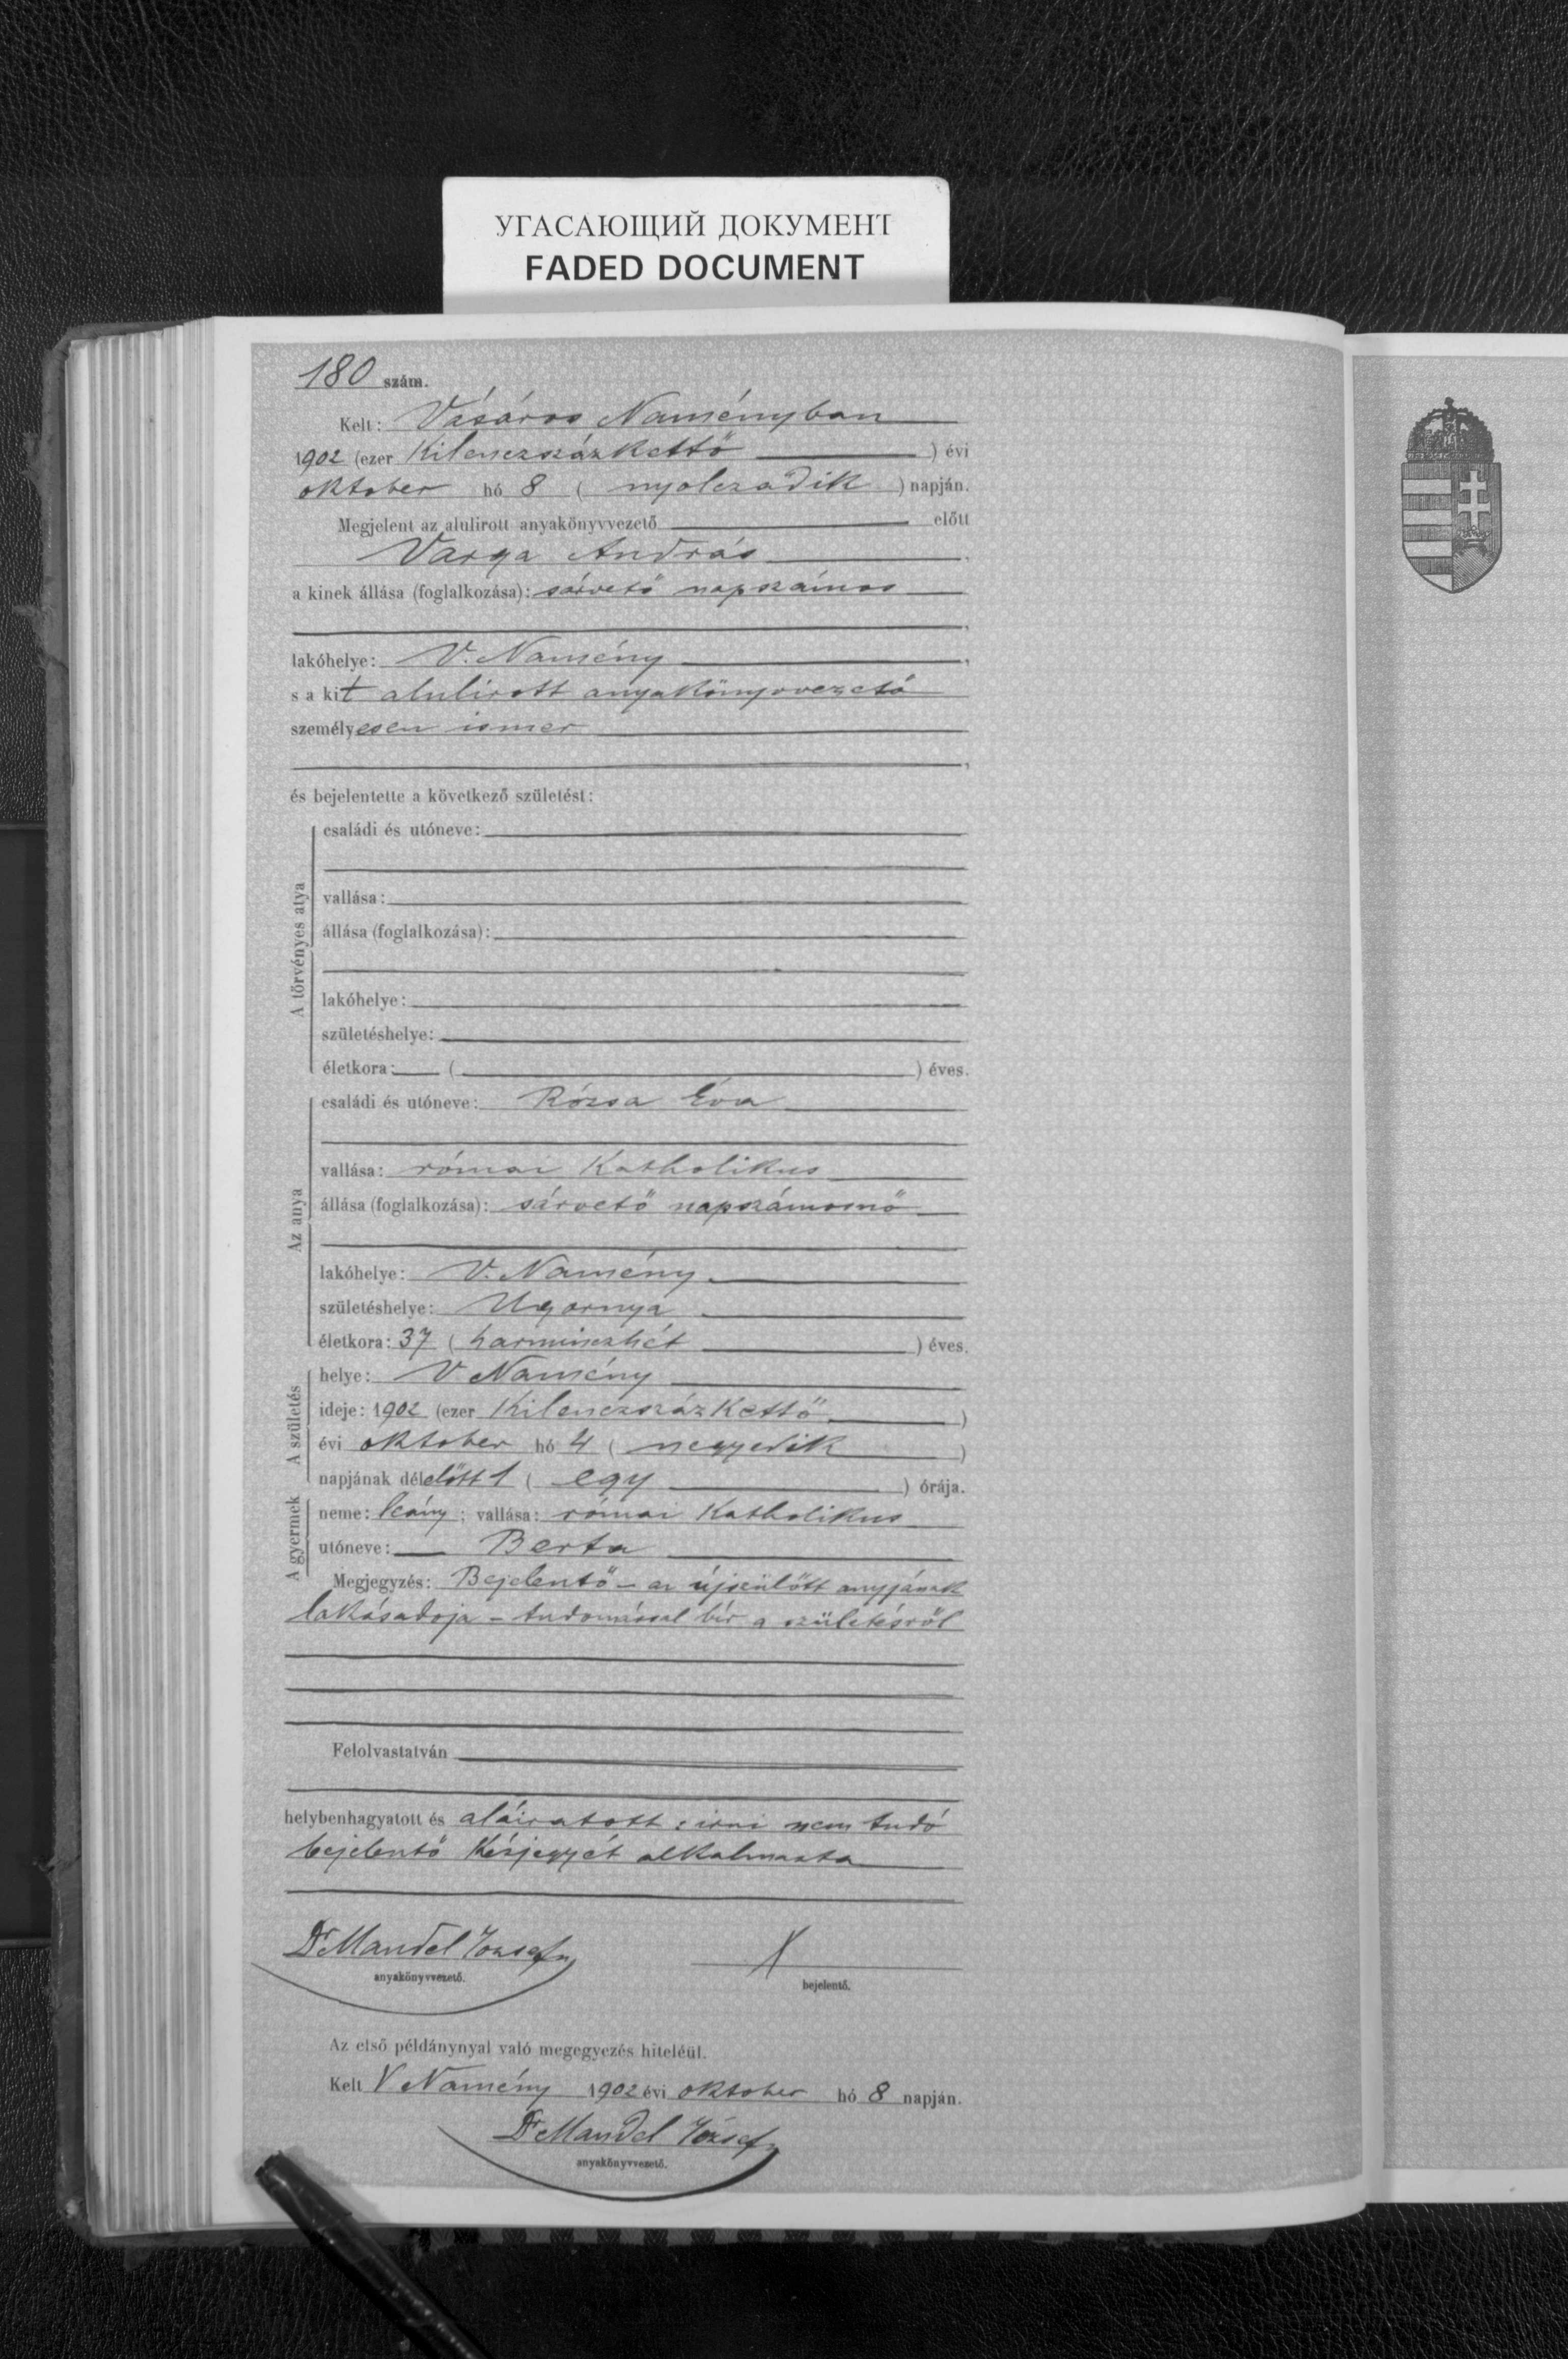 УГАСАЮЩИЙ ДОКУМЕНТ
FADED DOCUMENT
180 szám.
Kelt: Vásáros Naményban
1902 (ezer Kilenczszázkettő ) évi
oktober hó 8 ( nyolczadik ) napján.
Megjelent az alulirott anyakönyvvezető előtt
Varga András ,
a kinek állása (foglalkozása): sárvető napszámos
,
lakóhelye: V. Namény ,
s a kit alulirott anyakönyvvezető
személyesen ismer
,
és bejelentette a következő születést:
A törvényes atya
családi és utóneve:
vallása:
állása (foglalkozása):
lakóhelye:
születéshelye:
életkora: ( ) éves.
Az anya
családi és utóneve: Rózsa Éva
vallása: római Katholikus
állása (foglalkozása): sárvető napszámosnő
lakóhelye: V. Namény
születéshelye: Ugornya
életkora: 37 ( harminczhét ) éves.
A születés
helye: V Namény
ideje: 1902 (ezer Kilenczszázkettő )
évi oktober hó 4 ( negyedik )
napjának délelőtt 1 ( egy ) órája.
A gyermek
neme: leány; vallása: római Katholikus
utóneve: Berta
Megjegyzés: Bejelentő – az újszülött anyjának
lakásadoja – tudomással bír a születésről
Felolvastatván
helybenhagyatott és aláiratott; irni nem tudó
bejelentő Kézjegyét alkalmazta
Dr Mandel József X
anyakönyvvezető. bejelentő.
Az első példánynyal való megegyezés hiteléül.
Kelt V Namény 1902 évi oktober hó 8 napján.
Dr Mandel József
anyakönyvvezető.